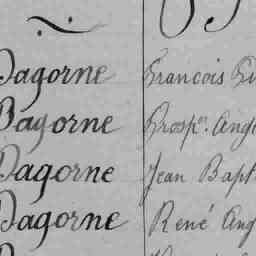 Dagorne François
Dagorne Prosp.r Ang
Dagorne Jean Bapt
Dagorne René Aug